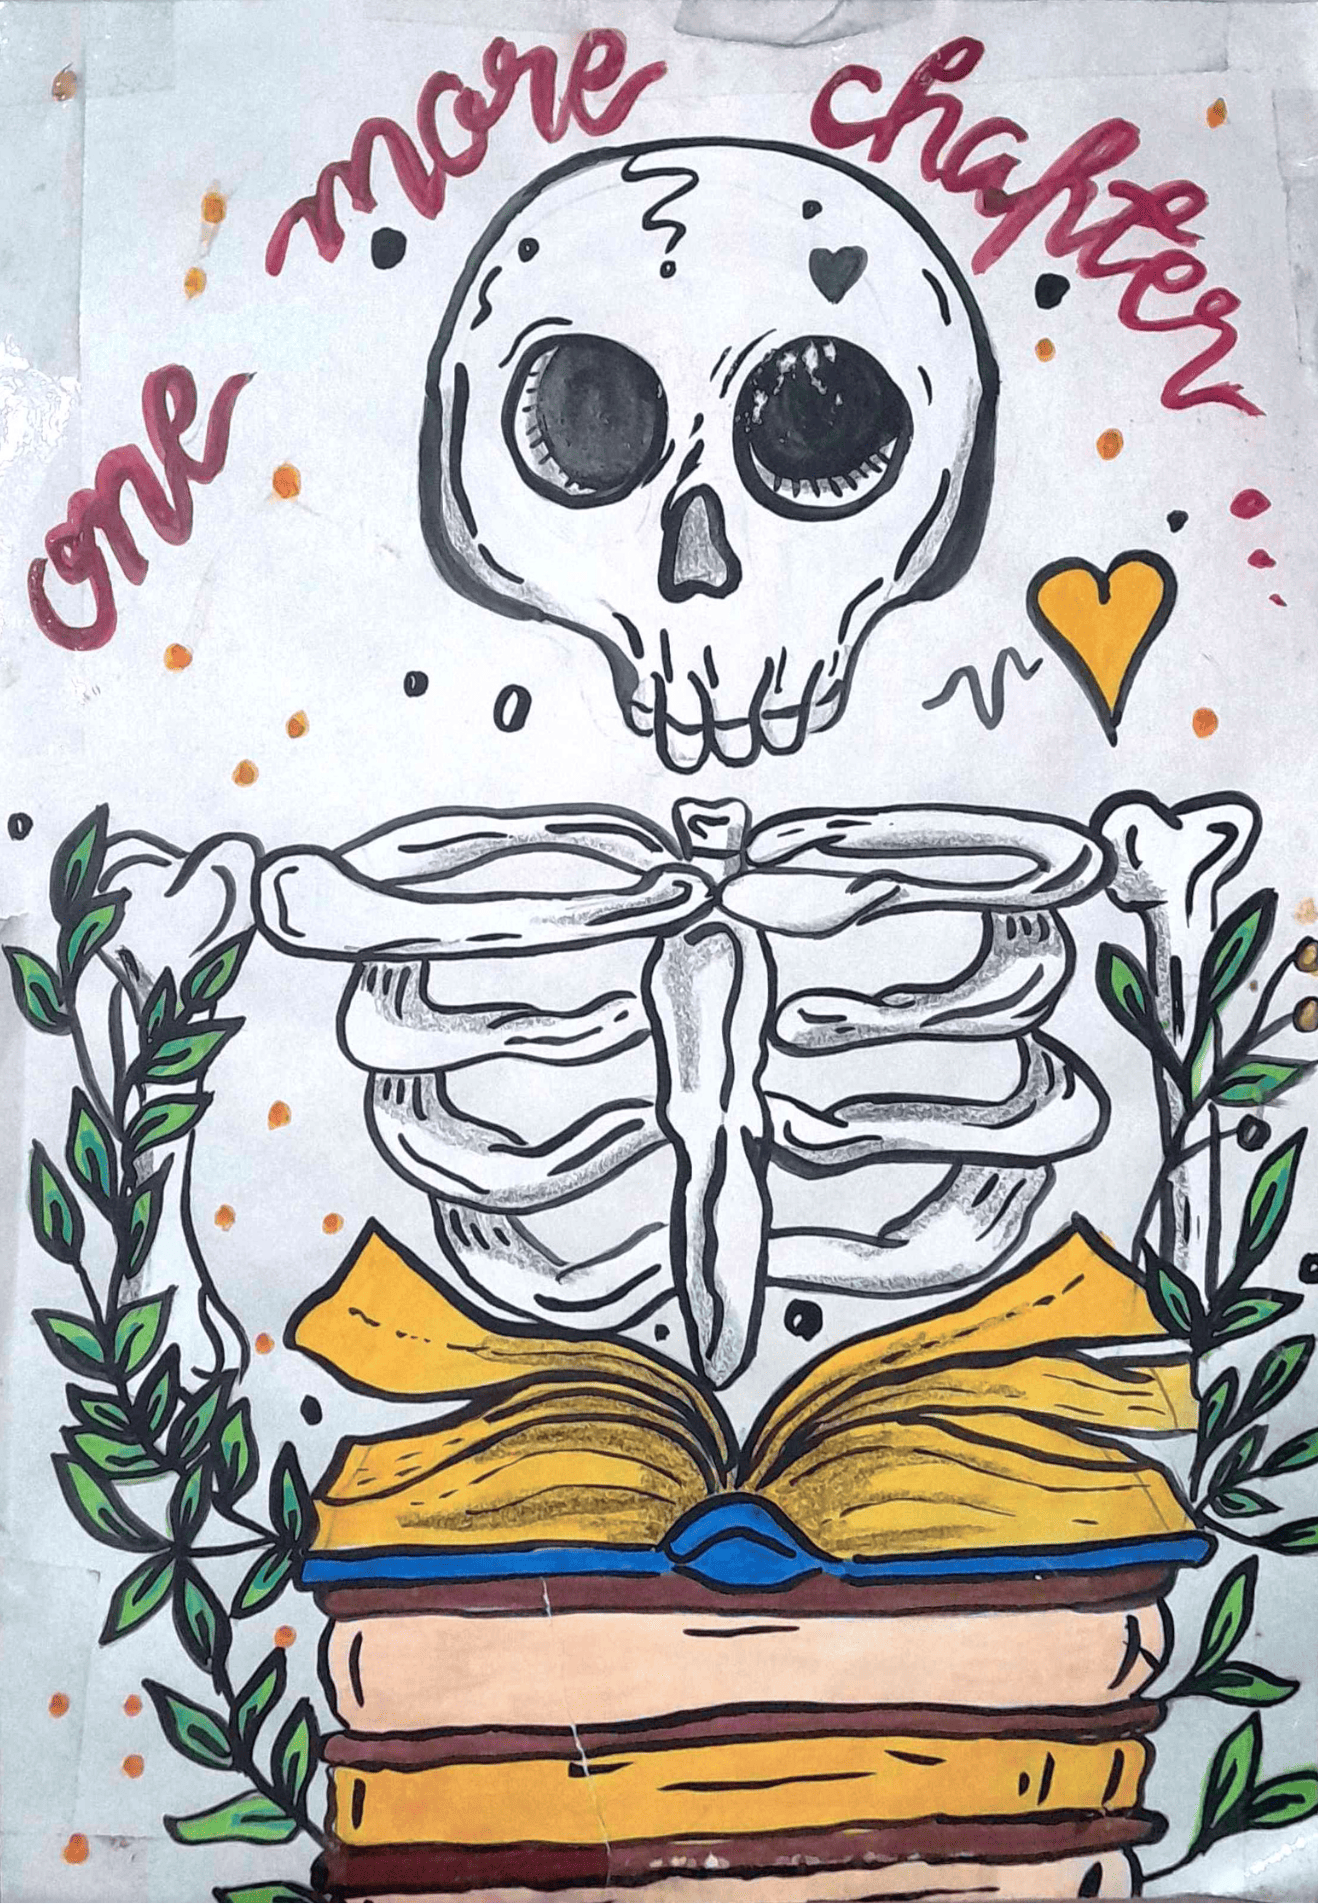 one more chapter...